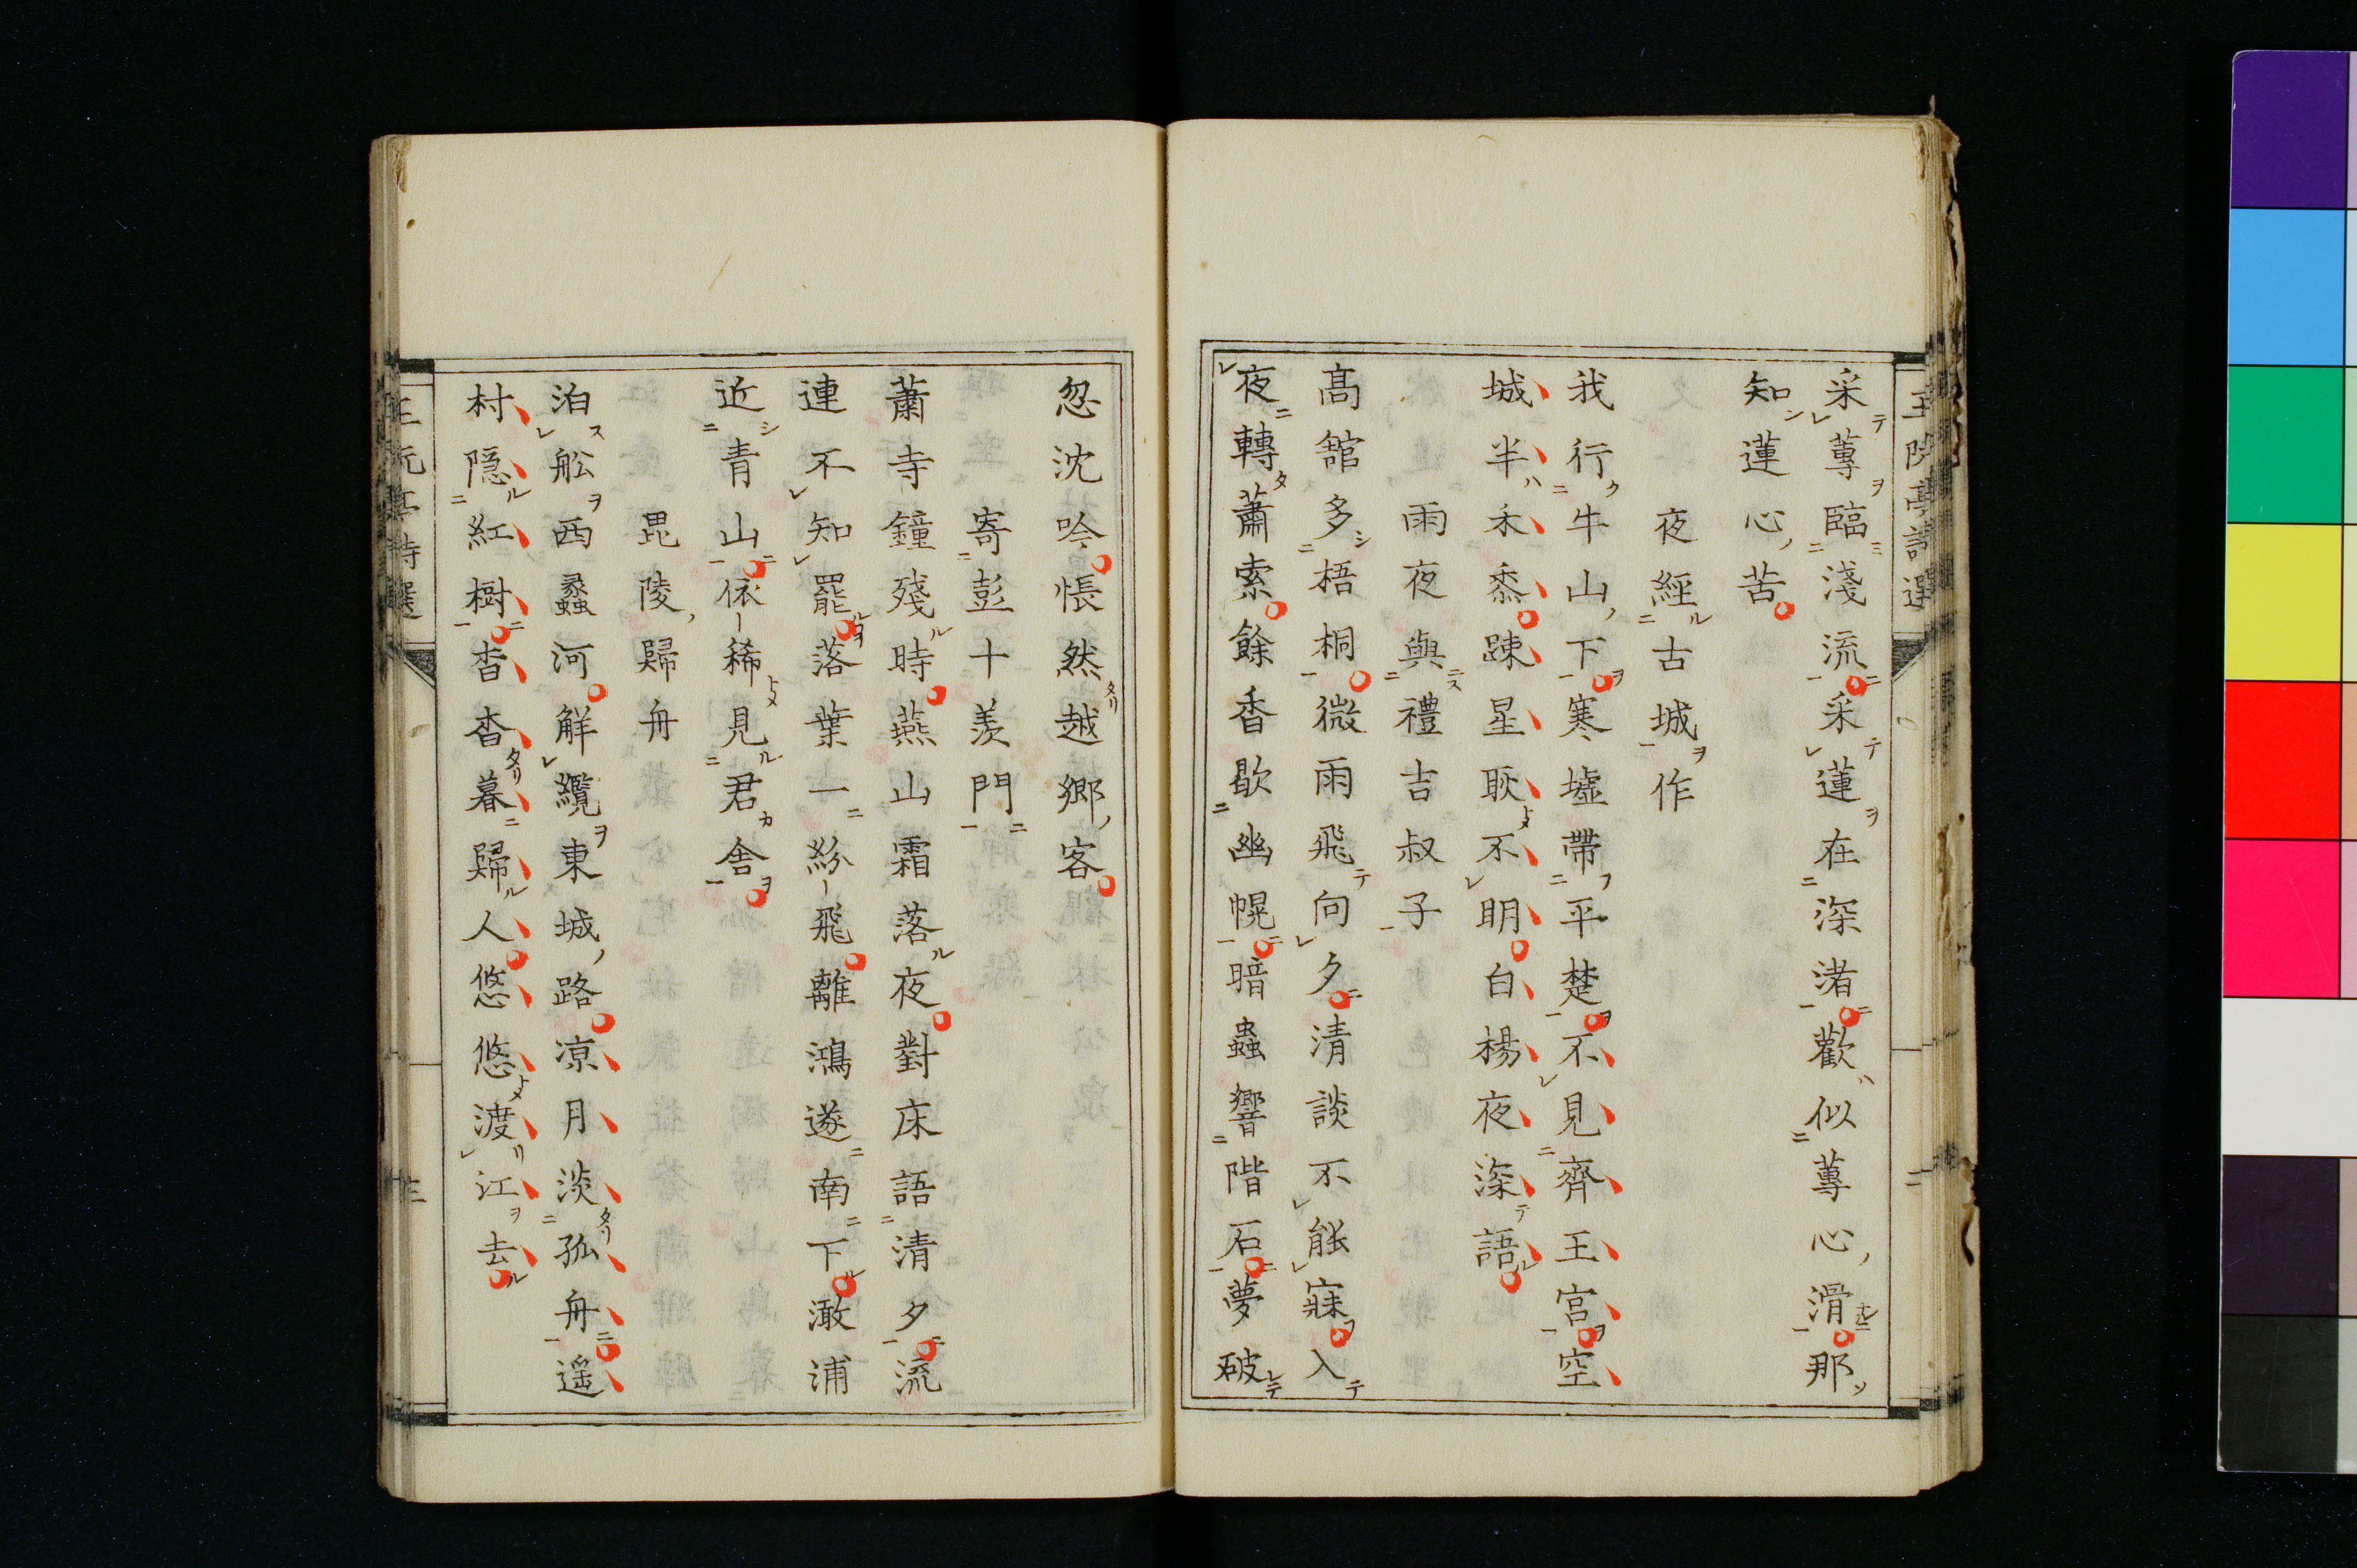 王阮亭詩選 二
采蓴臨淺流采蓮在深渚歡似蓴心滑那
知蓮心苦
夜經古城作
我行牛山下寒墟帶平楚不見齊王宮空
城半禾黍踈星耿不明白楊夜深語
雨夜與禮吉叔子
髙舘多梧桐微雨飛向夕清談不能寐入
夜轉蕭索餘香歇幽幌暗蟲響階石夢破
忽沈吟悵然越鄉客
寄彭十羨門
蕭寺鐘殘時燕山霜落夜對床語清夕流
連不知罷落葉一紛飛離鴻遂南下澉浦
近青山依稀見君舍
毘陵歸舟
泊舩西蠡河解纜東城路凉月淡孤舟遥
村隠紅樹杳杳暮歸人悠悠渡江去
王阮亭詩選 三